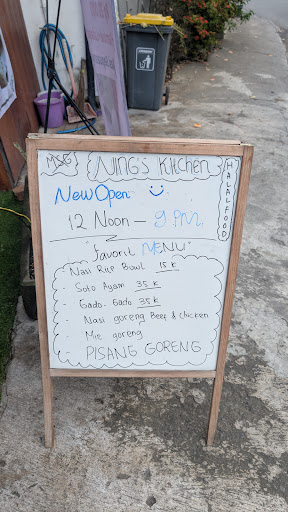 MSG
NING'S KITCHEN
HALAL FOOD
New Open
12 Noon - 9 P.M.
"favorit MENU"
- Nasi Rise Bowl 15 K
- Soto Ayam 35 K
- Gado-Gado 35 K
- Nasi goreng Beef & chicken
Mie goreng
PISANG GORENG